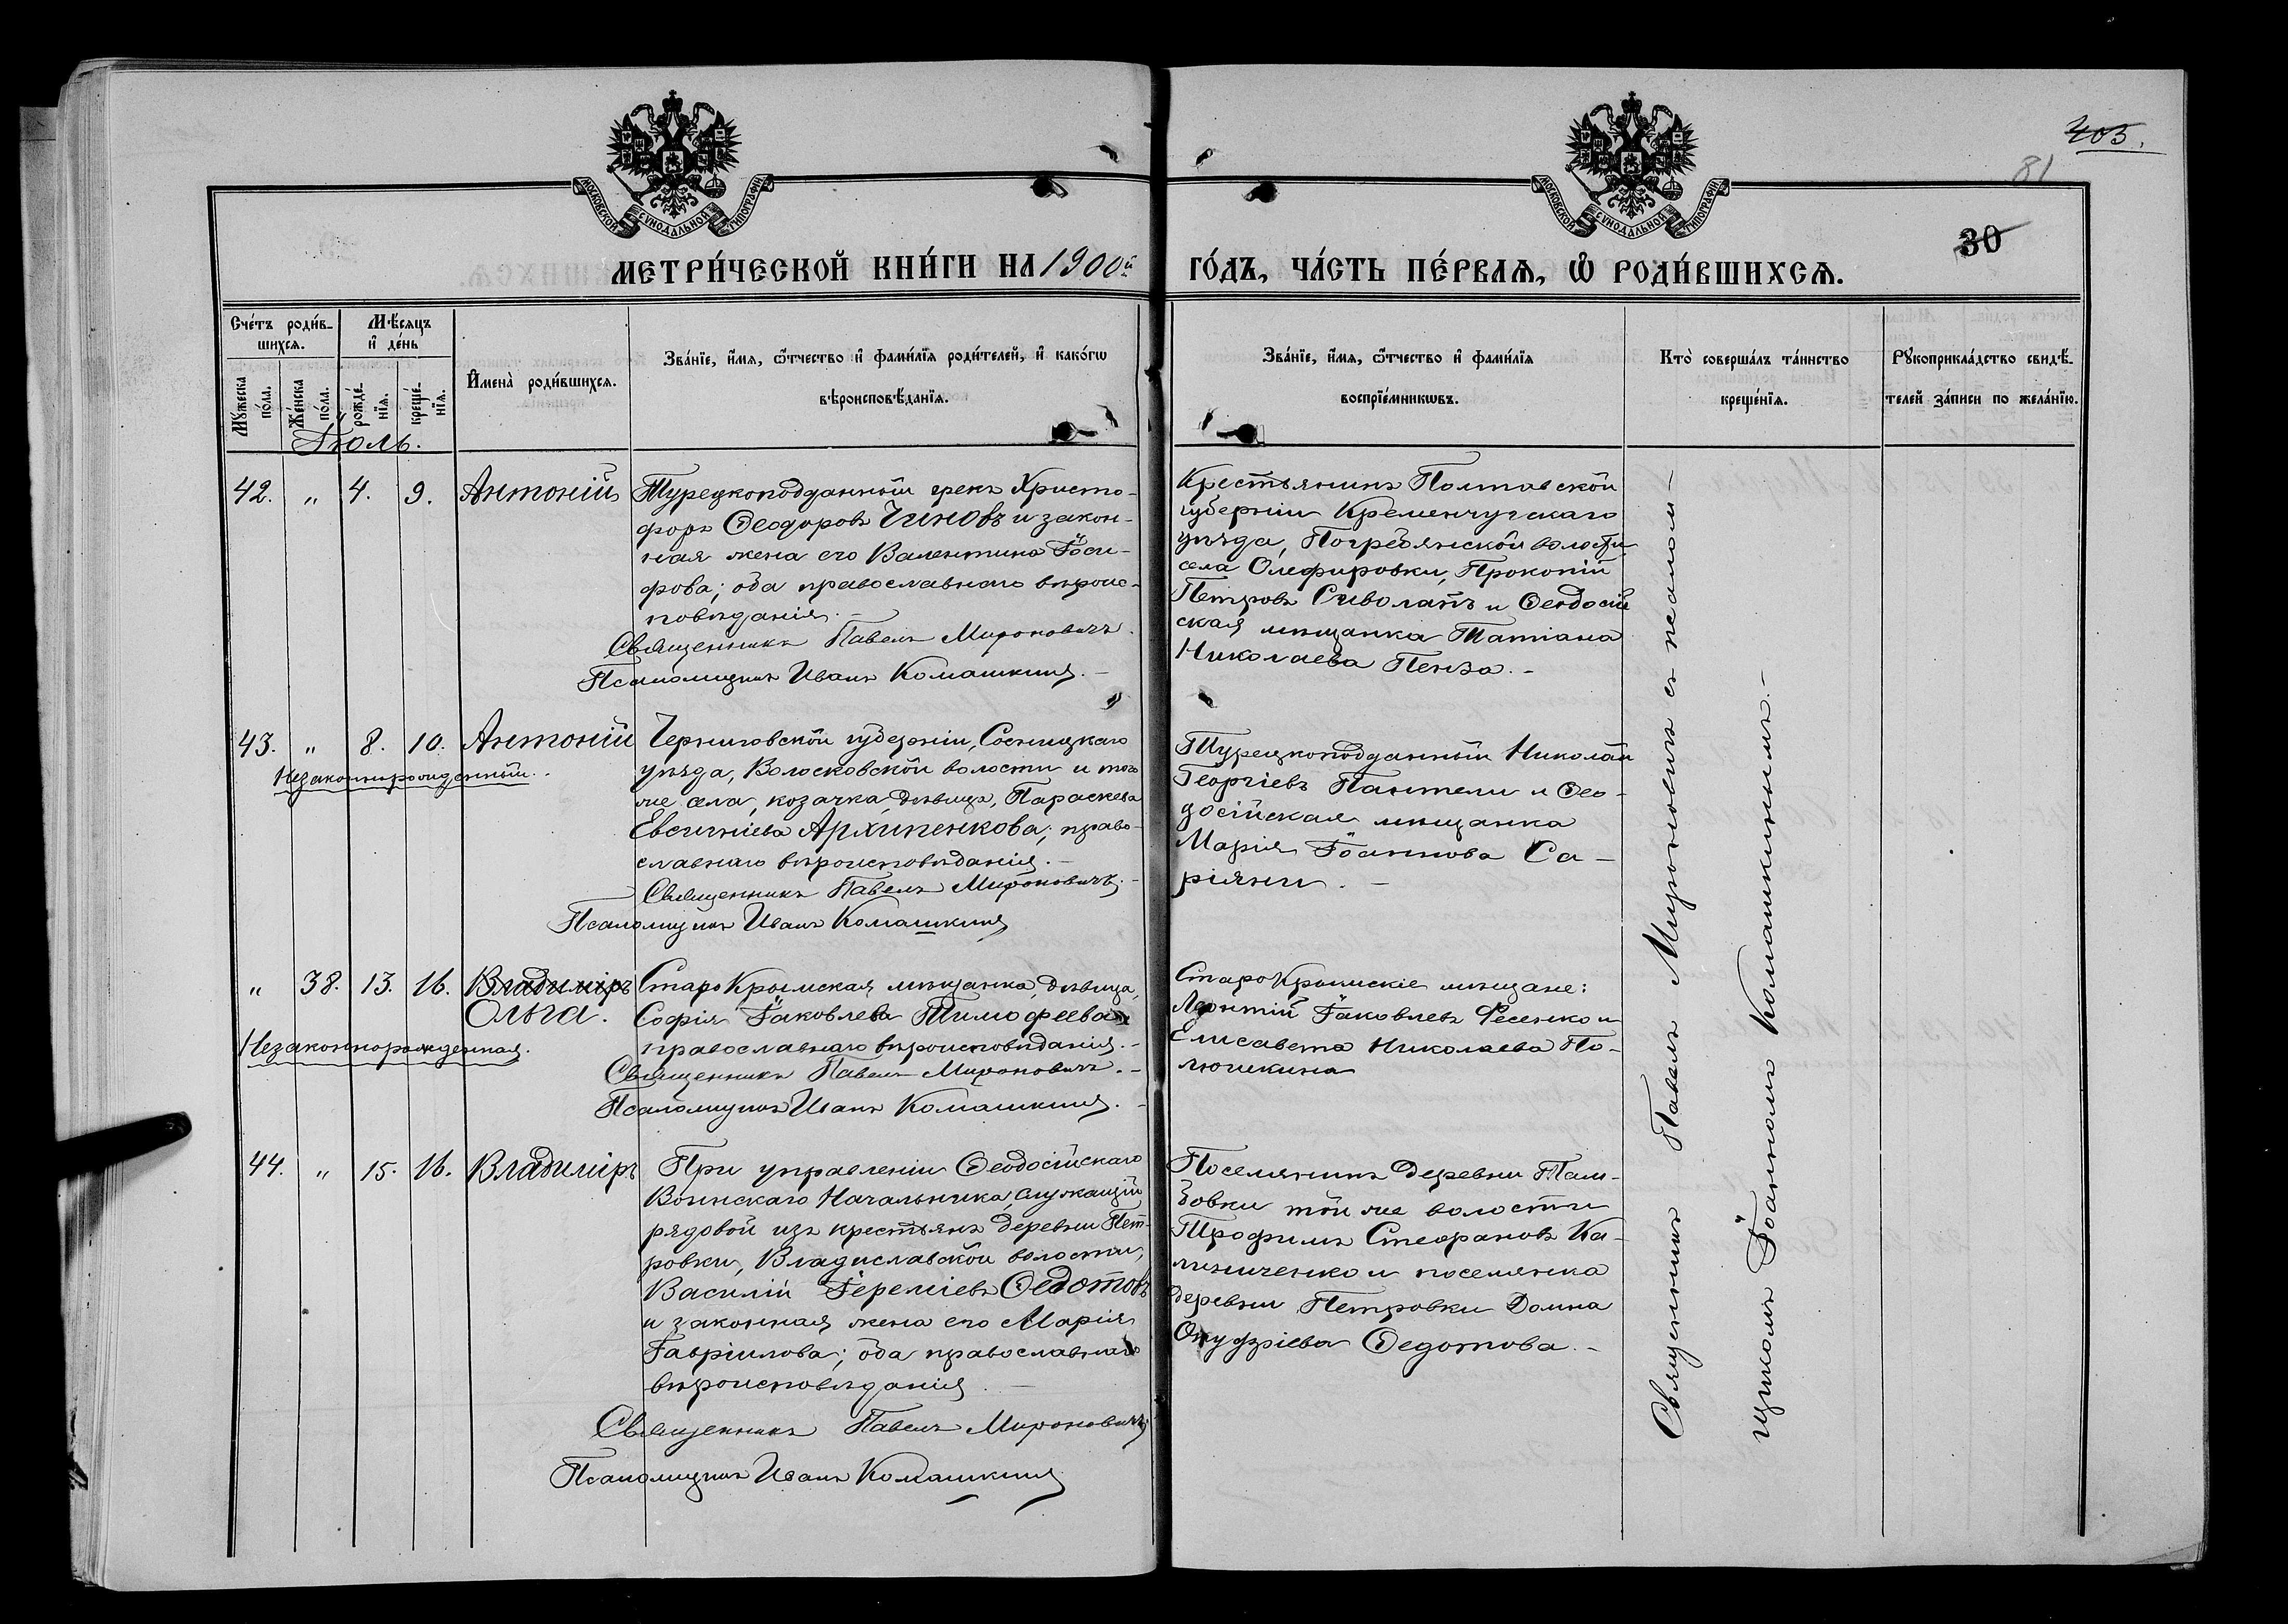 403.
81
30
МОСКОВСКОЙ СѴНОДАЛЬНОЙ ТИПОГРАФІИ
МОСКОВСКОЙ СѴНОДАЛЬНОЙ ТИПОГРАФІИ
МЕТРИ́ЧЕСКОЙ КНИ́ГИ НА 1900й ГО́ДЪ, ЧА́СТЬ ПЕ́РВАѦ, Ѡ҆ РОДИ́ВШИХСѦ.
Сче́тъ роди́в-
шихсѧ.
Мꙋжеска по́ла.
Же́нска по́ла.
Мѣ́сѧцъ
и҆ де́нь
рожде́-
нїѧ.
креще́-
нїѧ.
И҆мена̀ роди́вшихсѧ.
Зва́нїе, и҆́мѧ, ѻ҆́тчество и҆ фами́лїѧ роди́телей, и҆ како́гѡ
вѣроисповѣ́данїѧ.
Зва́нїе, и҆́мѧ, ѻ҆́тчество и҆ фами́лїѧ
воспрїе́мникѡвъ.
Кто̀ соверша́лъ та́инство
креще́нїѧ.
Рꙋкоприкла́дство свидѣ́-
телей за́писи по жела́нїю.
Іюль.
42. " 4. 9. Антоній
Турецкоподданный грекъ Христо-
форъ Ѳеодоровъ Чиновъ и закон-
ная жена его Валентина Іоси-
фова; оба православнаго вѣроис-
повѣданія.
Священникъ Павелъ Мироновичъ.
Псаломщикъ Иванъ Комашкинъ.
Крестьянинъ Полтавской
губерніи Кременчугскаго
уѣзда, Погребянской волости
села Олефировки, Прокопій
Петровъ Сиволапъ и Ѳеодосій
ская мѣщанка Татіана
Николаева Пенза.
43. " 8. 10. Антоній
Незаконнорожденный.
Черниговской губерніи, Сосницкаго
уѣзда, Волосковской волости и того
же села, козачка, дѣвица, Параскева
Евсигніева Архипенкова; право-
славнаго вѣроисповѣданія.
Священникъ Павелъ Мироновичъ.
Псаломщикъ Иванъ Комашкинъ
Турецкоподданный Николай
Георгіевъ Пантели и Ѳео-
досійская мѣщанка
Марія Іоаннова Са-
ріяни.
" 38. 13. 16. Владиміръ
Ольга.
Незаконнорожденная.
Старо Крымская мѣщанка, дѣвица,
Софія Іаковлева Тимофеева
православнаго вѣроисповѣданія.
Священникъ Павелъ Мироновичъ.
Псаломщикъ Иванъ Комашкинъ.
Старо Крымскіе мѣщане:
Леонтій Іаковлевъ Фесенко и
Елисавета Николаева По-
люшкина
44. " 15. 16. Владиміръ
При управленіи Ѳеодосійскаго
Воинскаго Начальника, служащій
рядовой изъ крестьянъ деревни Пет-
ровки, Владиславской волости,
Василій Іереміевъ Ѳедотовъ
и законная жена его Марія
Гавріилова; оба православнаго
вѣроисповѣданія.
Священникъ Павелъ Мироновичъ
Псаломщикъ Иванъ Комашкинъ
Поселянинъ деревни Там-
бовки той же волости
Трофимъ Стефановъ Ка-
линиченко и поселянка
деревни Петровки Домна
Ѳедотова.
Священникъ Павелъ Мироновичъ съ псалом-
щикомъ Іоанномъ Комашкинымъ.